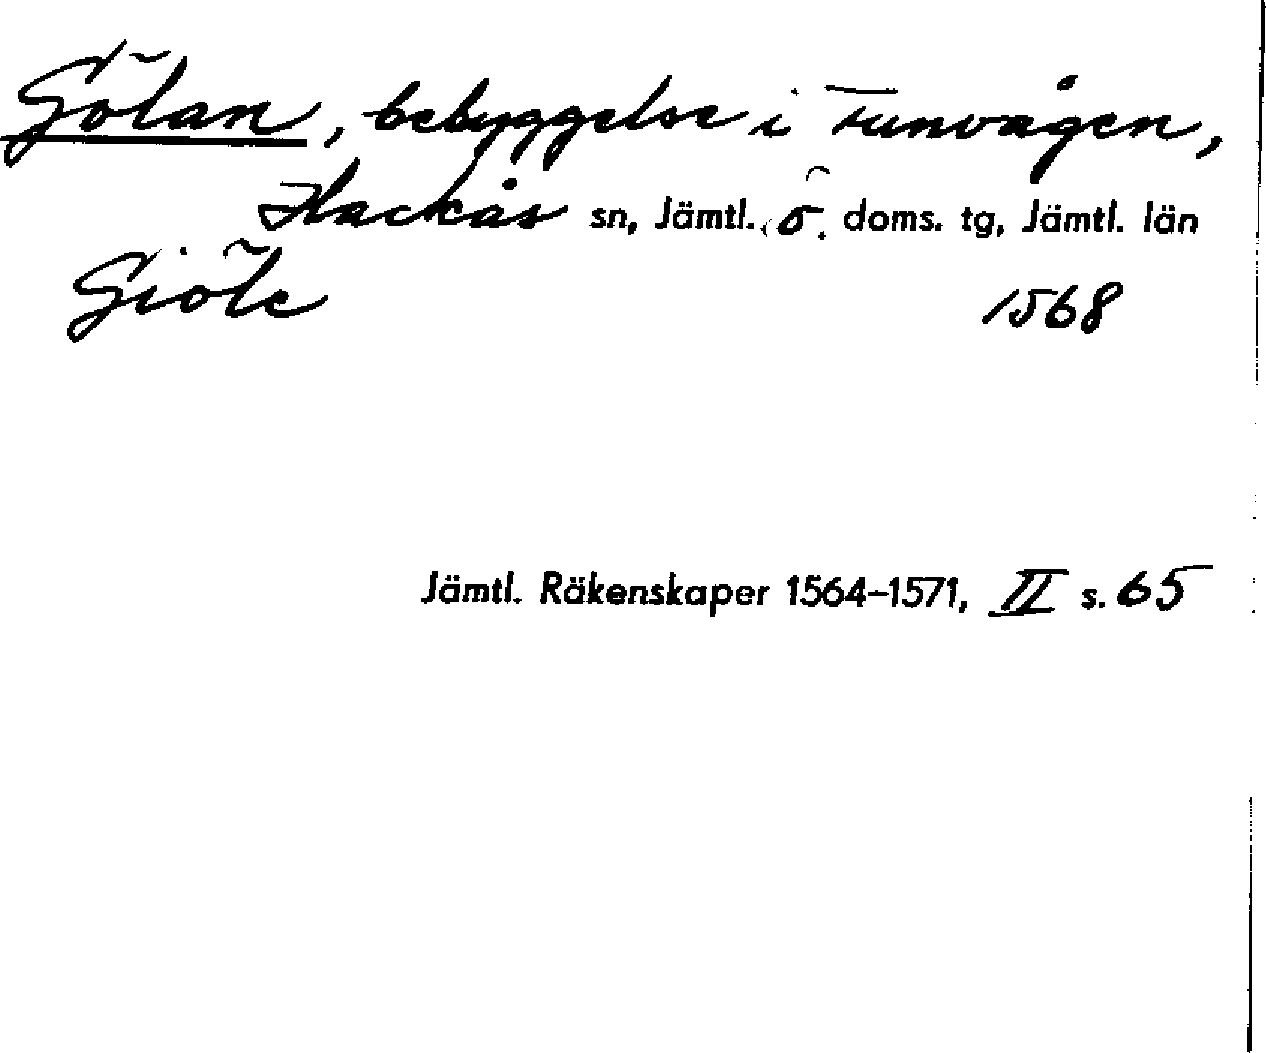 Gölan, bebyggelse i Funvågen,
Hackås sn, Jämtl. ö. doms. tg, Jämtl. län
Giöle 1568
Jämtl. Räkenskaper 1564–1571, II s. 65